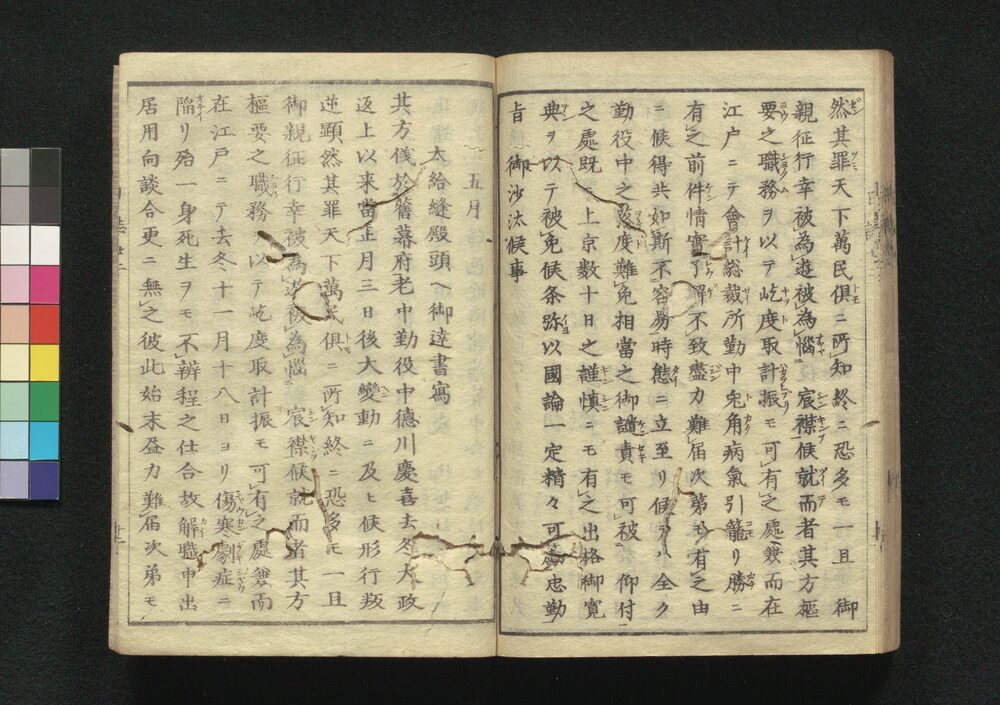 然其罪天下萬民俱ニ所知終ニ恐多モ一且 御
親征行幸被為遊被為惱 宸襟候就而者其方樞
要之職務ヲ以テ屹度取計振モ可有之處兼而在
江戸ニテ會計総裁所勤中兎角病氣引籠リ勝ニ
有之前件情實了解不致盡力難届次第モ有之由
ニ候得共如斯不容易時態ニ立至リ候テハ全ク
勤役中之落度難免相當之御譴責モ可被 仰付
之處既ニ上京数十日之謹慎ニモ有之出格御寛
典ヲ以テ被免候条弥以國論一定精々可盡忠勤
旨 御沙汰候事
五月
大給縫殿頭ヘ御達書寫
其方儀於舊幕府老中勤役中德川慶喜去冬大政
返上以来當正月三日後大變動ニ及ヒ候形行叛
逆顕然其罪天下萬民俱ニ所知終ニ恐多モ一且
御親征行幸被為遊被為惱 宸襟候就而者其方
樞要之職務ヲ以テ屹度取計振モ可有之處兼而
在江戸ニテ去冬十一月十八日ヨリ傷寒劇症ニ
陥リ殆一身死生ヲモ不辨程之仕合故解職申出
居用向談合更ニ無之彼此始末盡力難届次第モ